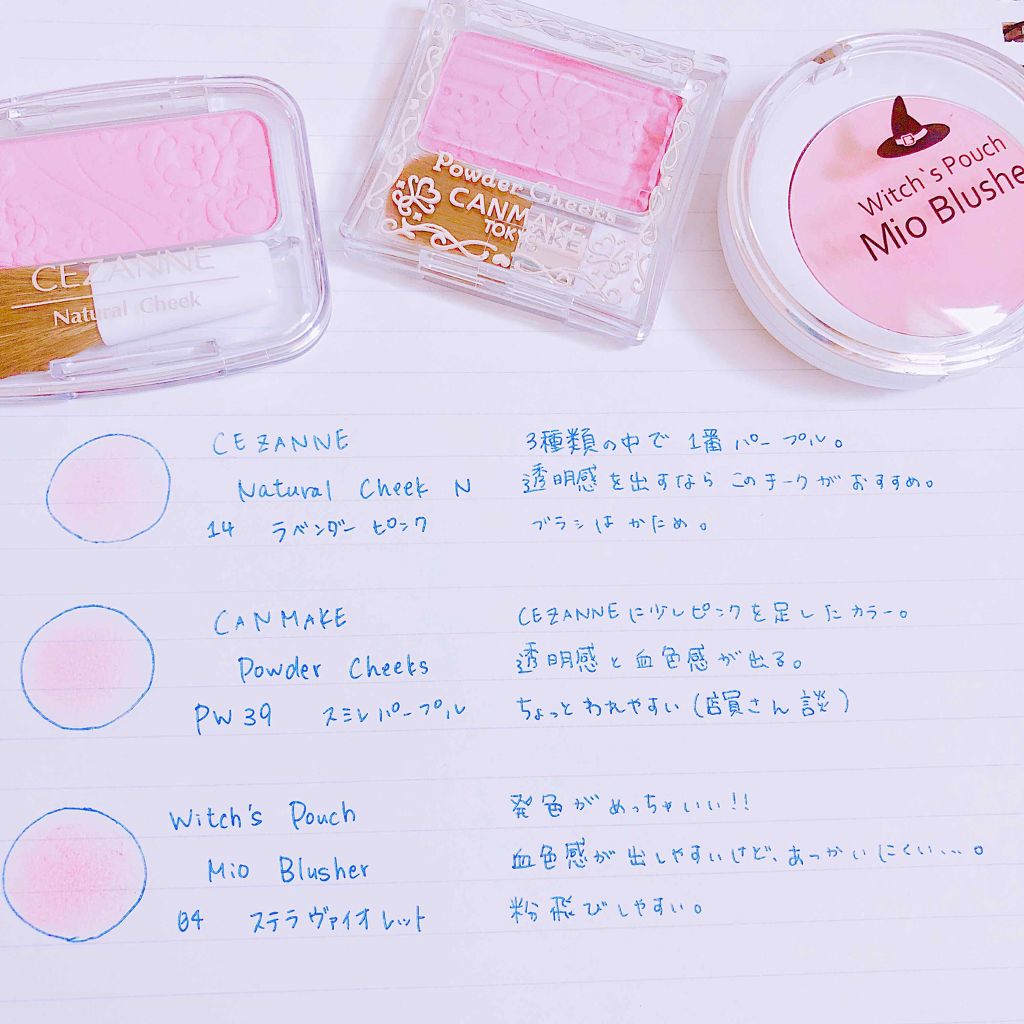 CEZANNE
Natural Cheek
Powder Cheeks
CANMAKE
TOKYO
Witch`s Pouch
Mio Blushe
CEZANNE
Natural Cheek N
14 ラベンダーピンク
3種類の中で1番パープル。
透明感を出すならこのチークがおすすめ。
ブラシはかため。
CANMAKE
Powder Cheeks
PW39 スミレパープル
CEZANNEに少しピンクを足したカラー。
透明感と血色感が出る。
ちょっとわれやすい(店員さん談)
Witch's Pouch
Mio Blusher
04 ステラヴァイオレット
発色がめっちゃいい!!
血色感が出しやすいけど、あつかいにくい...。
粉飛びしやすい。